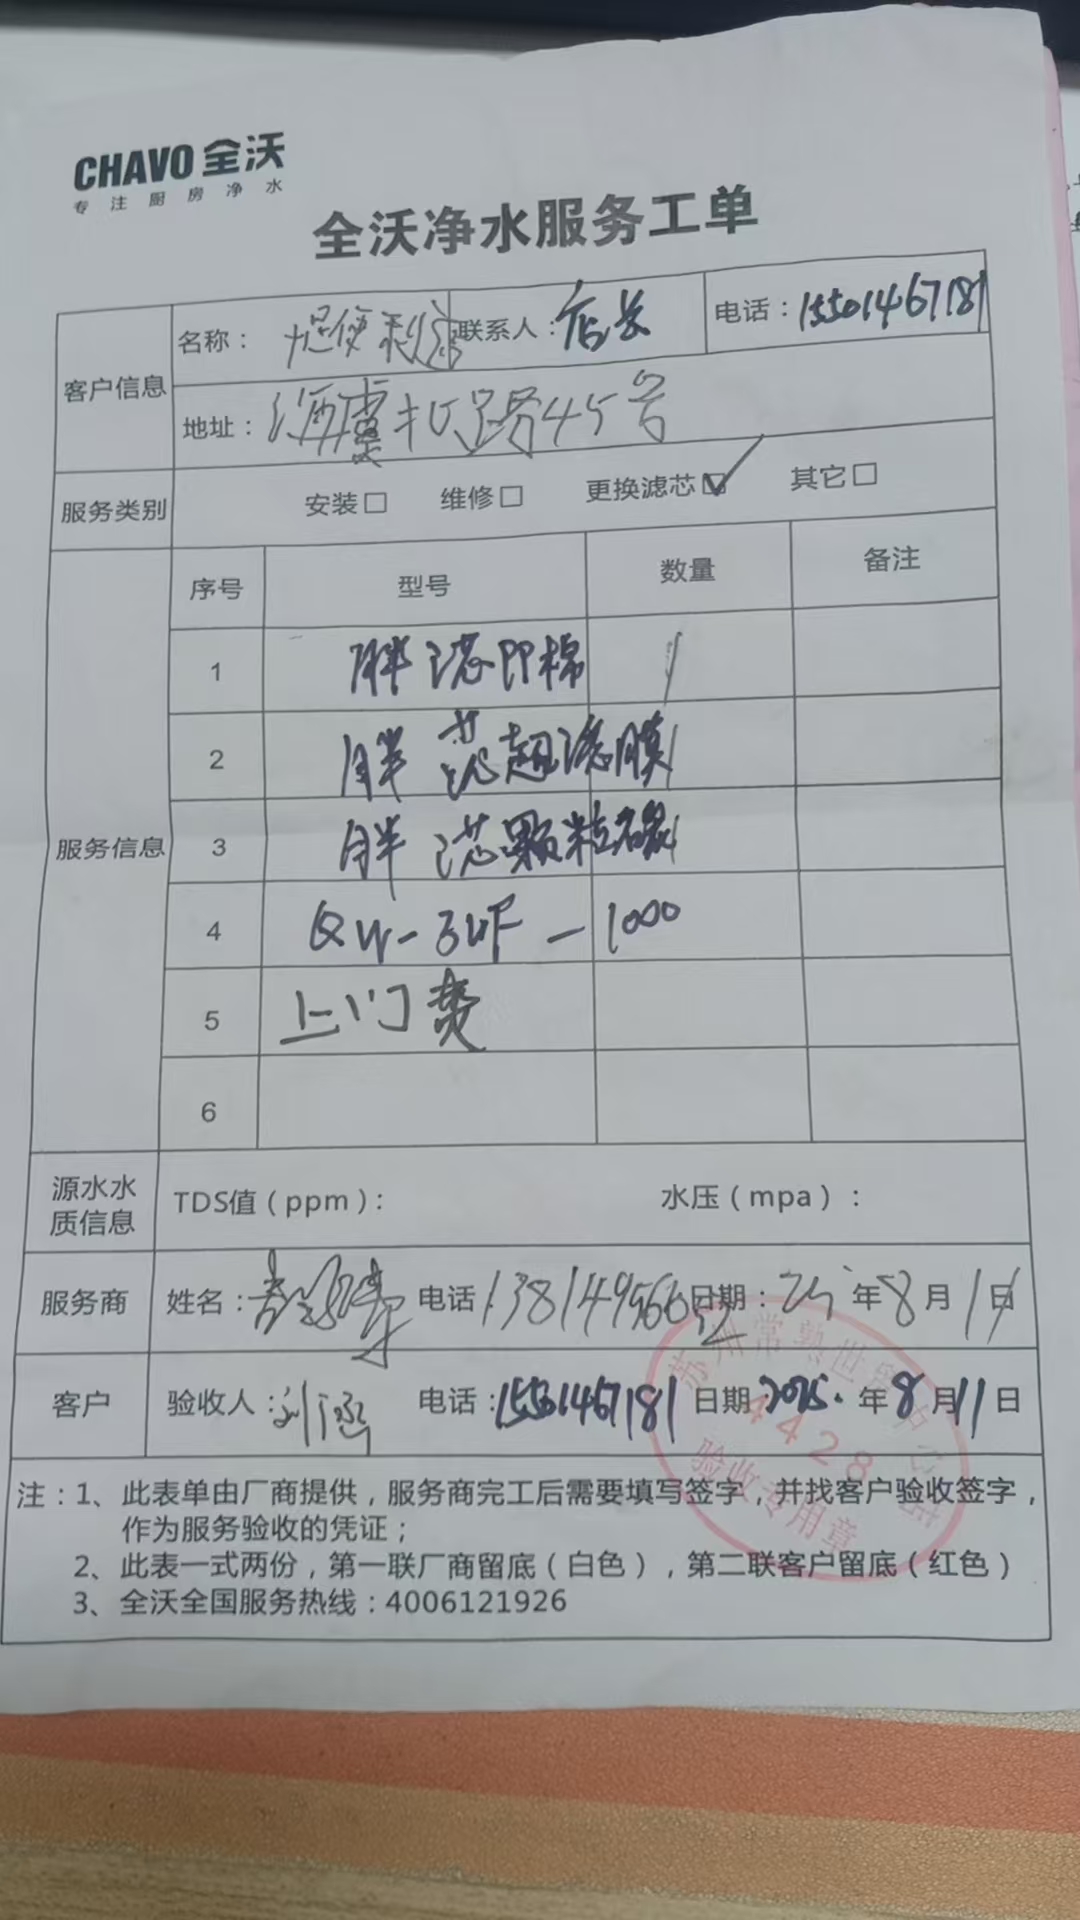 CHAVO 全沃
专注厨房净水
全沃净水服务工单
客户信息
名称： 便利 联系人：店长 电话：15501467181
地址： 海虞北路45号
服务类别 安装□ 维修□ 更换滤芯☑ 其它□
服务信息
序号 型号 数量 备注
1 胖滤芯PP棉 1
2 胖滤芯超滤膜 1
3 胖滤芯颗粒碳 1
4 QW-3UF-1000
5 上门费
6
源水水质信息 TDS值（ppm）： 水压（mpa）：
服务商 姓名： 电话 138149566 日期：25年8月11日
客户 验收人：刘 电话：15501467181 日期 2025.年8月11日
苏州常熟世
4428
验收专用章
注：1、此表单由厂商提供，服务商完工后需要填写签字，并找客户验收签字，
作为服务验收的凭证；
2、此表一式两份，第一联厂商留底（白色），第二联客户留底（红色）
3、全沃全国服务热线：4006121926